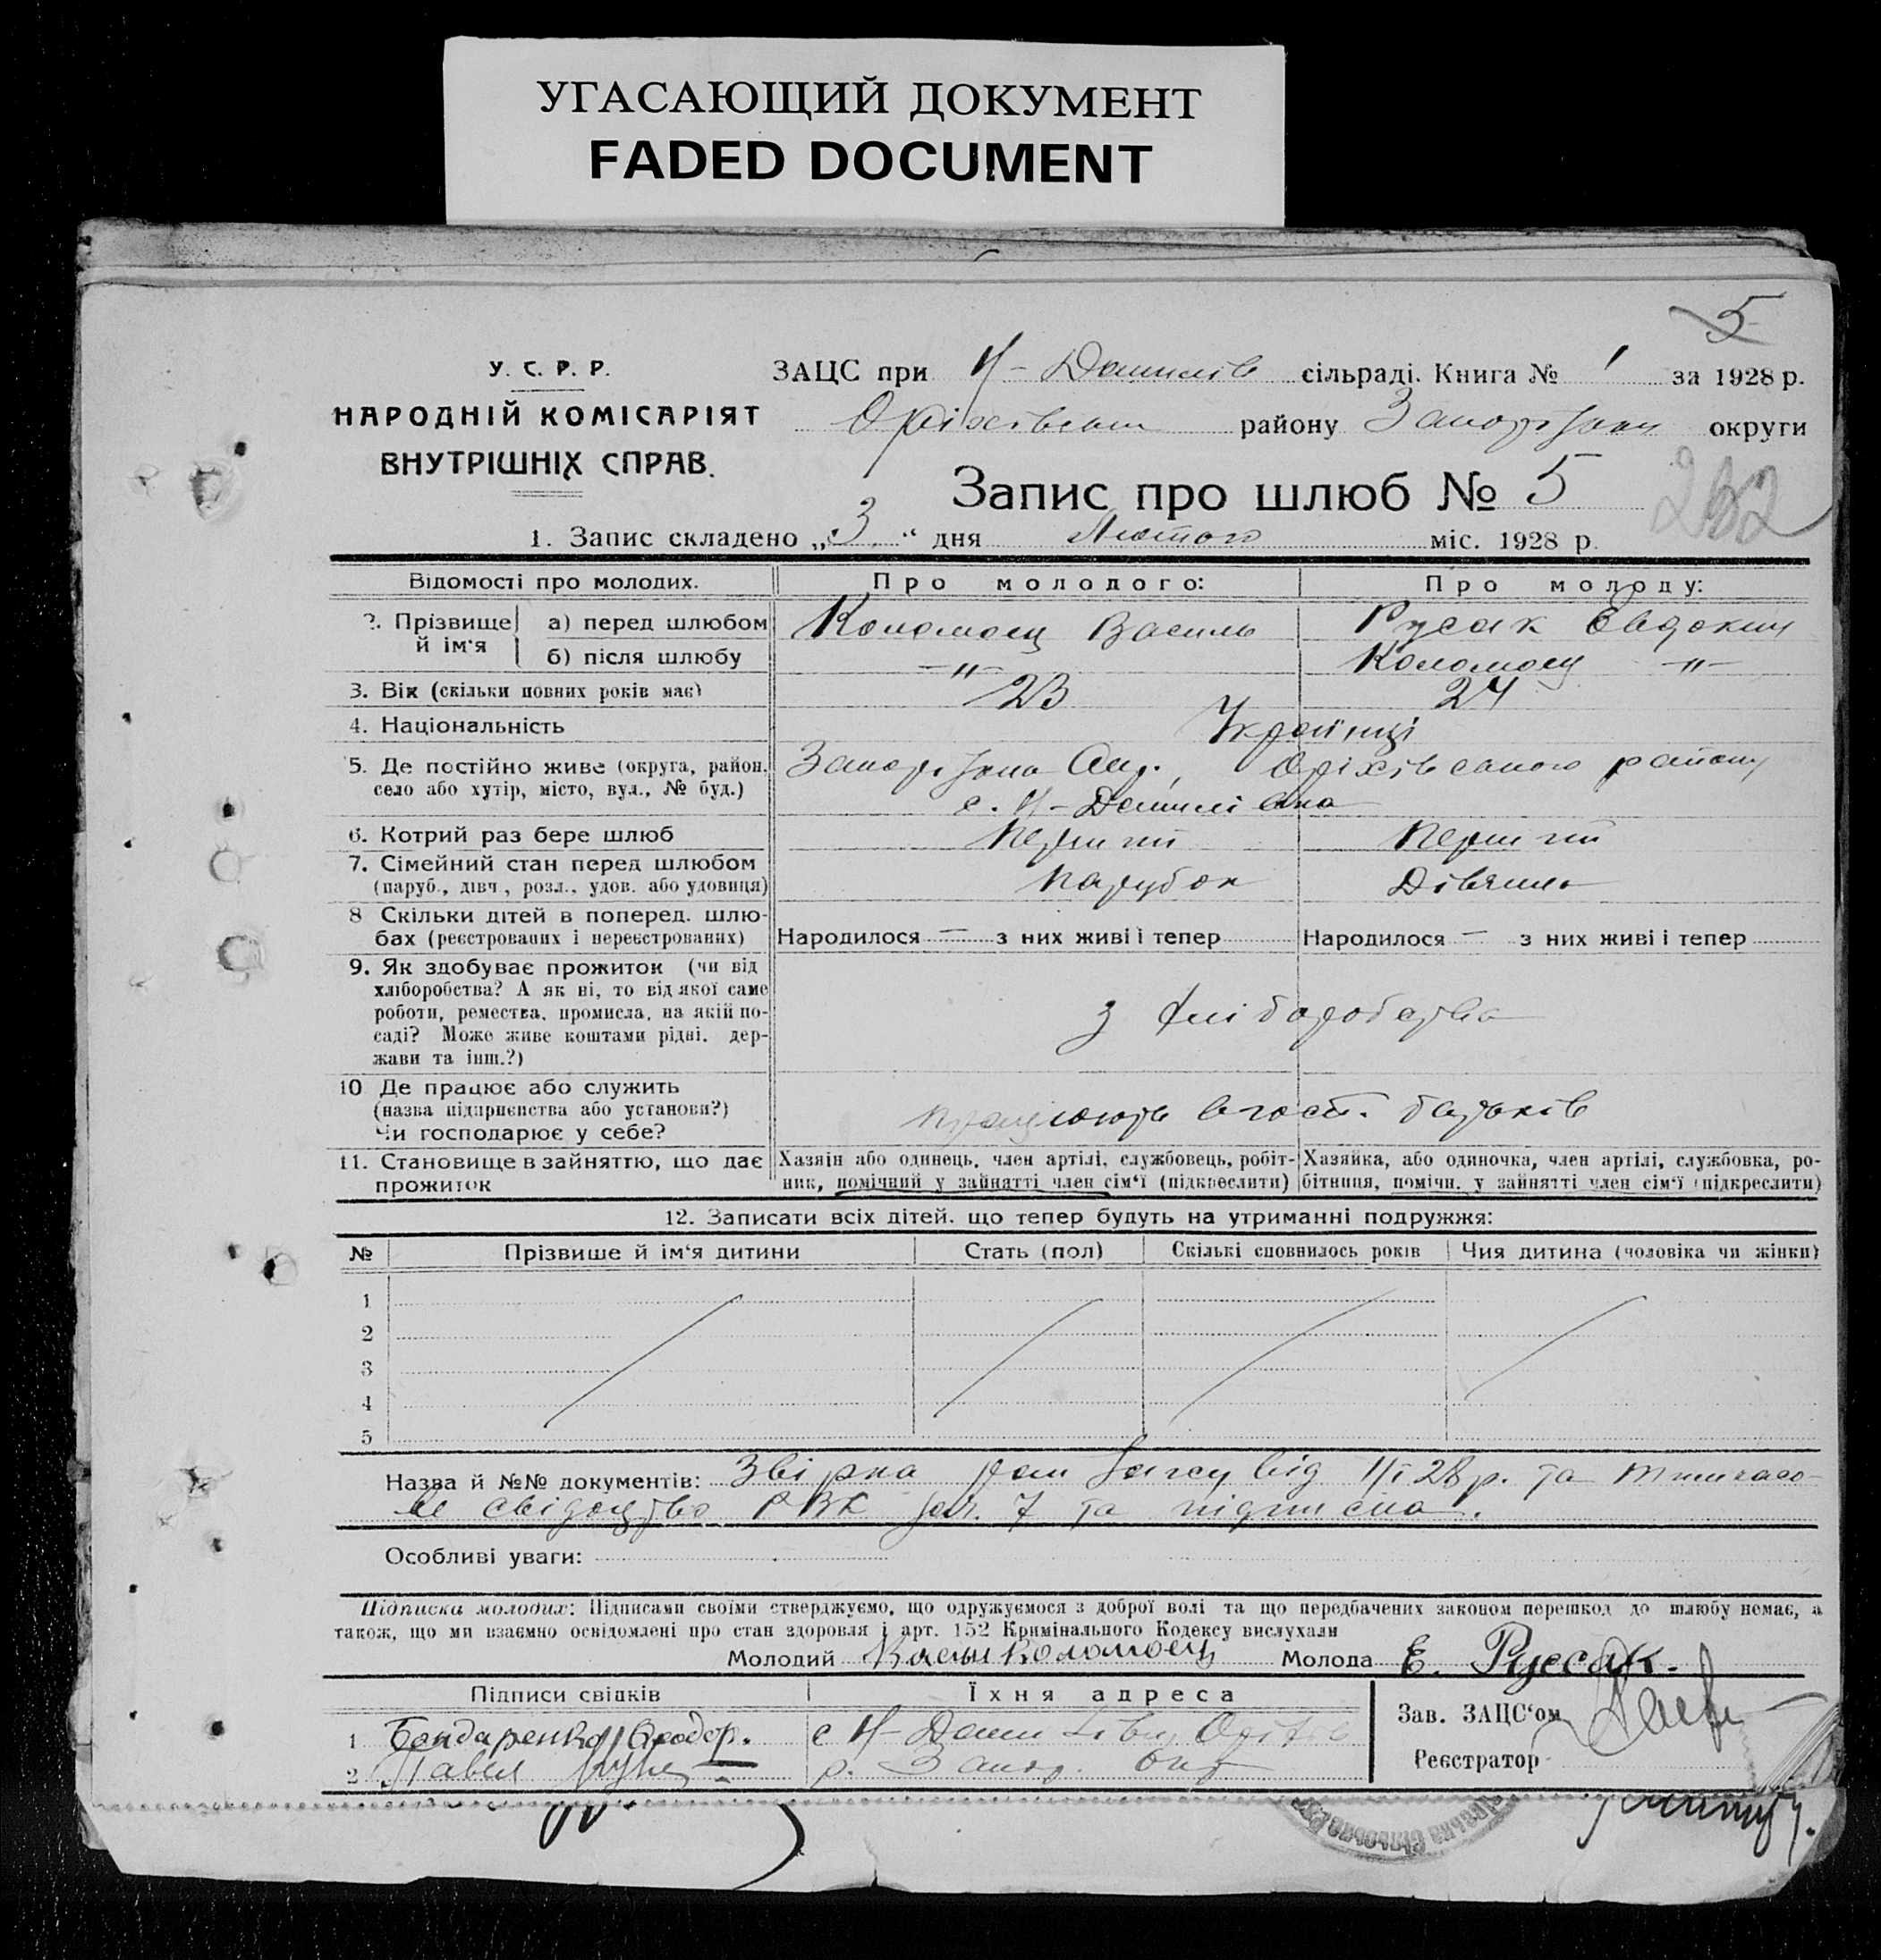 УГАСАЮЩИЙ ДОКУМЕНТ
FADED DOCUMENT
5
У. С. Р. Р.
НАРОДНІЙ КОМІСАРІЯТ
ВНУТРІШНІХ СПРАВ.
ЗАЦС при Н-Данилів сільраді. Книга № 1 за 1928 р.
Оріхівськ району Запоріжськ округи
Запис про шлюб № 5
232
1. Запис складено „3“ дня Лютого міс. 1928 р.
Відомості про молодих. Про молодого: Про молоду:
2. Прізвище й ім'я
а) перед шлюбом Коломоец Василь Русак Евдокия
б) після шлюбу —"— Коломоец —"—
3. Вік (скільки повних років має) 23 24
4. Національність Українці
5. Де постійно живе (округа, район, Запоріжська Окр., Оріхівського району
село або хутір, місто, вул., № буд.) с. Н-Данилівка
6. Котрий раз бере шлюб Перший Перший
7. Сімейний стан перед шлюбом
(паруб., дівч., розл., удов. або удовиця) Парубок Дівчина
8 Скільки дітей в поперед. шлю-
бах (реєстрованих і нереєстрованих) Народилося — з них живі і тепер Народилося — з них живі і тепер
9. Як здобуває прожиток (чи від
хліборобства? А як ні, то від якої саме
роботи, ремества, промисла, на якій по-
саді? Може живе коштами рідні, дер-
жави та інш.?)
з хліборобства
10 Де працює або служить
(назва підприєнства або установи?)
Чи господарює у себе?
працюють в госп. батьків
11. Становище в зайняттю, що дає
прожиток
Хазяїн або одинець, член артілі, службовець, робіт-
ник, помічний у зайнятті член сім'ї (підкреслити)
Хазяйка, або одиночка, член артілі, службовка, ро-
бітниця, помічн. у зайнятті член сім'ї (підкреслити)
12. Записати всіх дітей, що тепер будуть на утриманні подружжя:
№ Прізвише й ім'я дитини Стать (пол) Скількі сповнилось років Чия дитина (чоловіка чи жінки)
1
2
3
4
5
Назва й №№ документів: від 11/I 28 р. та тимчасо-
ве свідоцтво РВК за ч. 7 та підписка.
Особливі уваги:
Підписка молодих: Підписами своїми стверджуємо, що одружуємося з доброї волі та що передбачених законом перешкод до шлюбу немає, а
також, що ми взаємно освідомлені про стан здоровля і арт. 152 Кримінального Кодексу вислухали
Молодий Василь Коломоец Молода Е. Руссак.
Підписи свідків Їхня адреса
1 Бондаренко Феодор. с Н-Данилівки Оріхів
2 Павел р. Запор. Окр
Зав. ЗАЦС'ом
Реєстратор